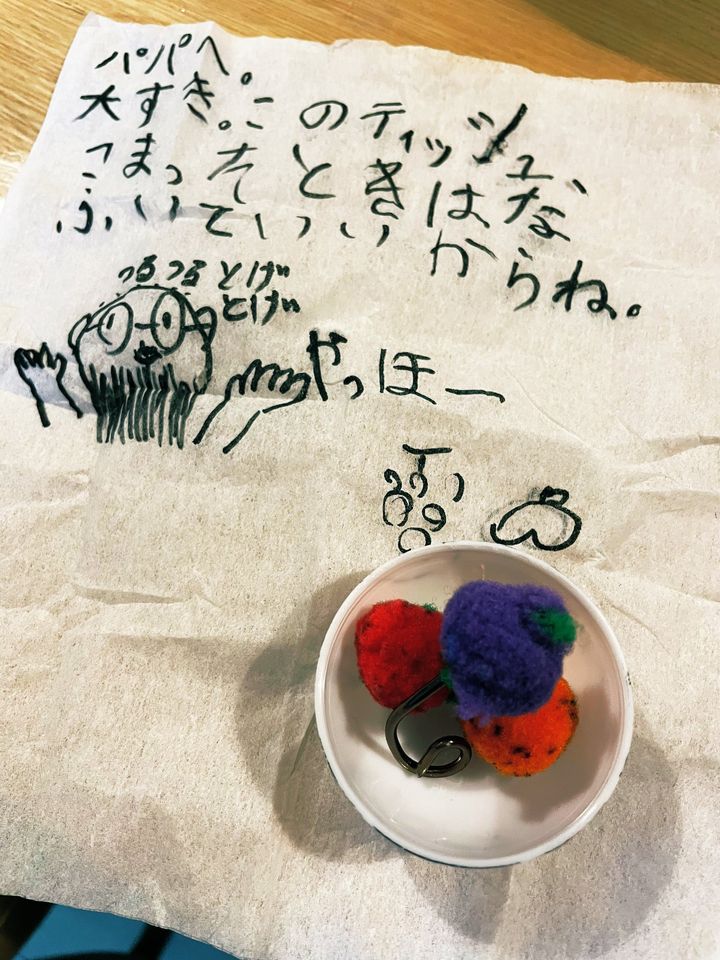 パパへ。
大すき。このティッシュ、
こまったときはな
ふいていいからね。
つるつるとげ
とげ
やっほー